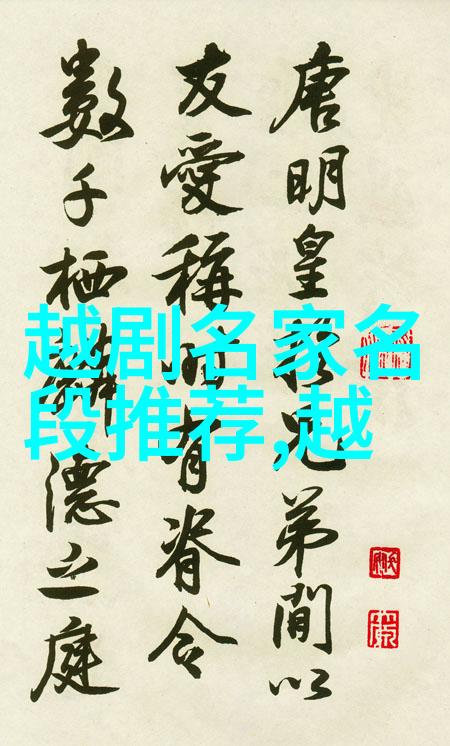 越剧名家名
段推荐,越
唐明皇於兄弟間以
友愛稱時有脊令
數千栖麟德之庭